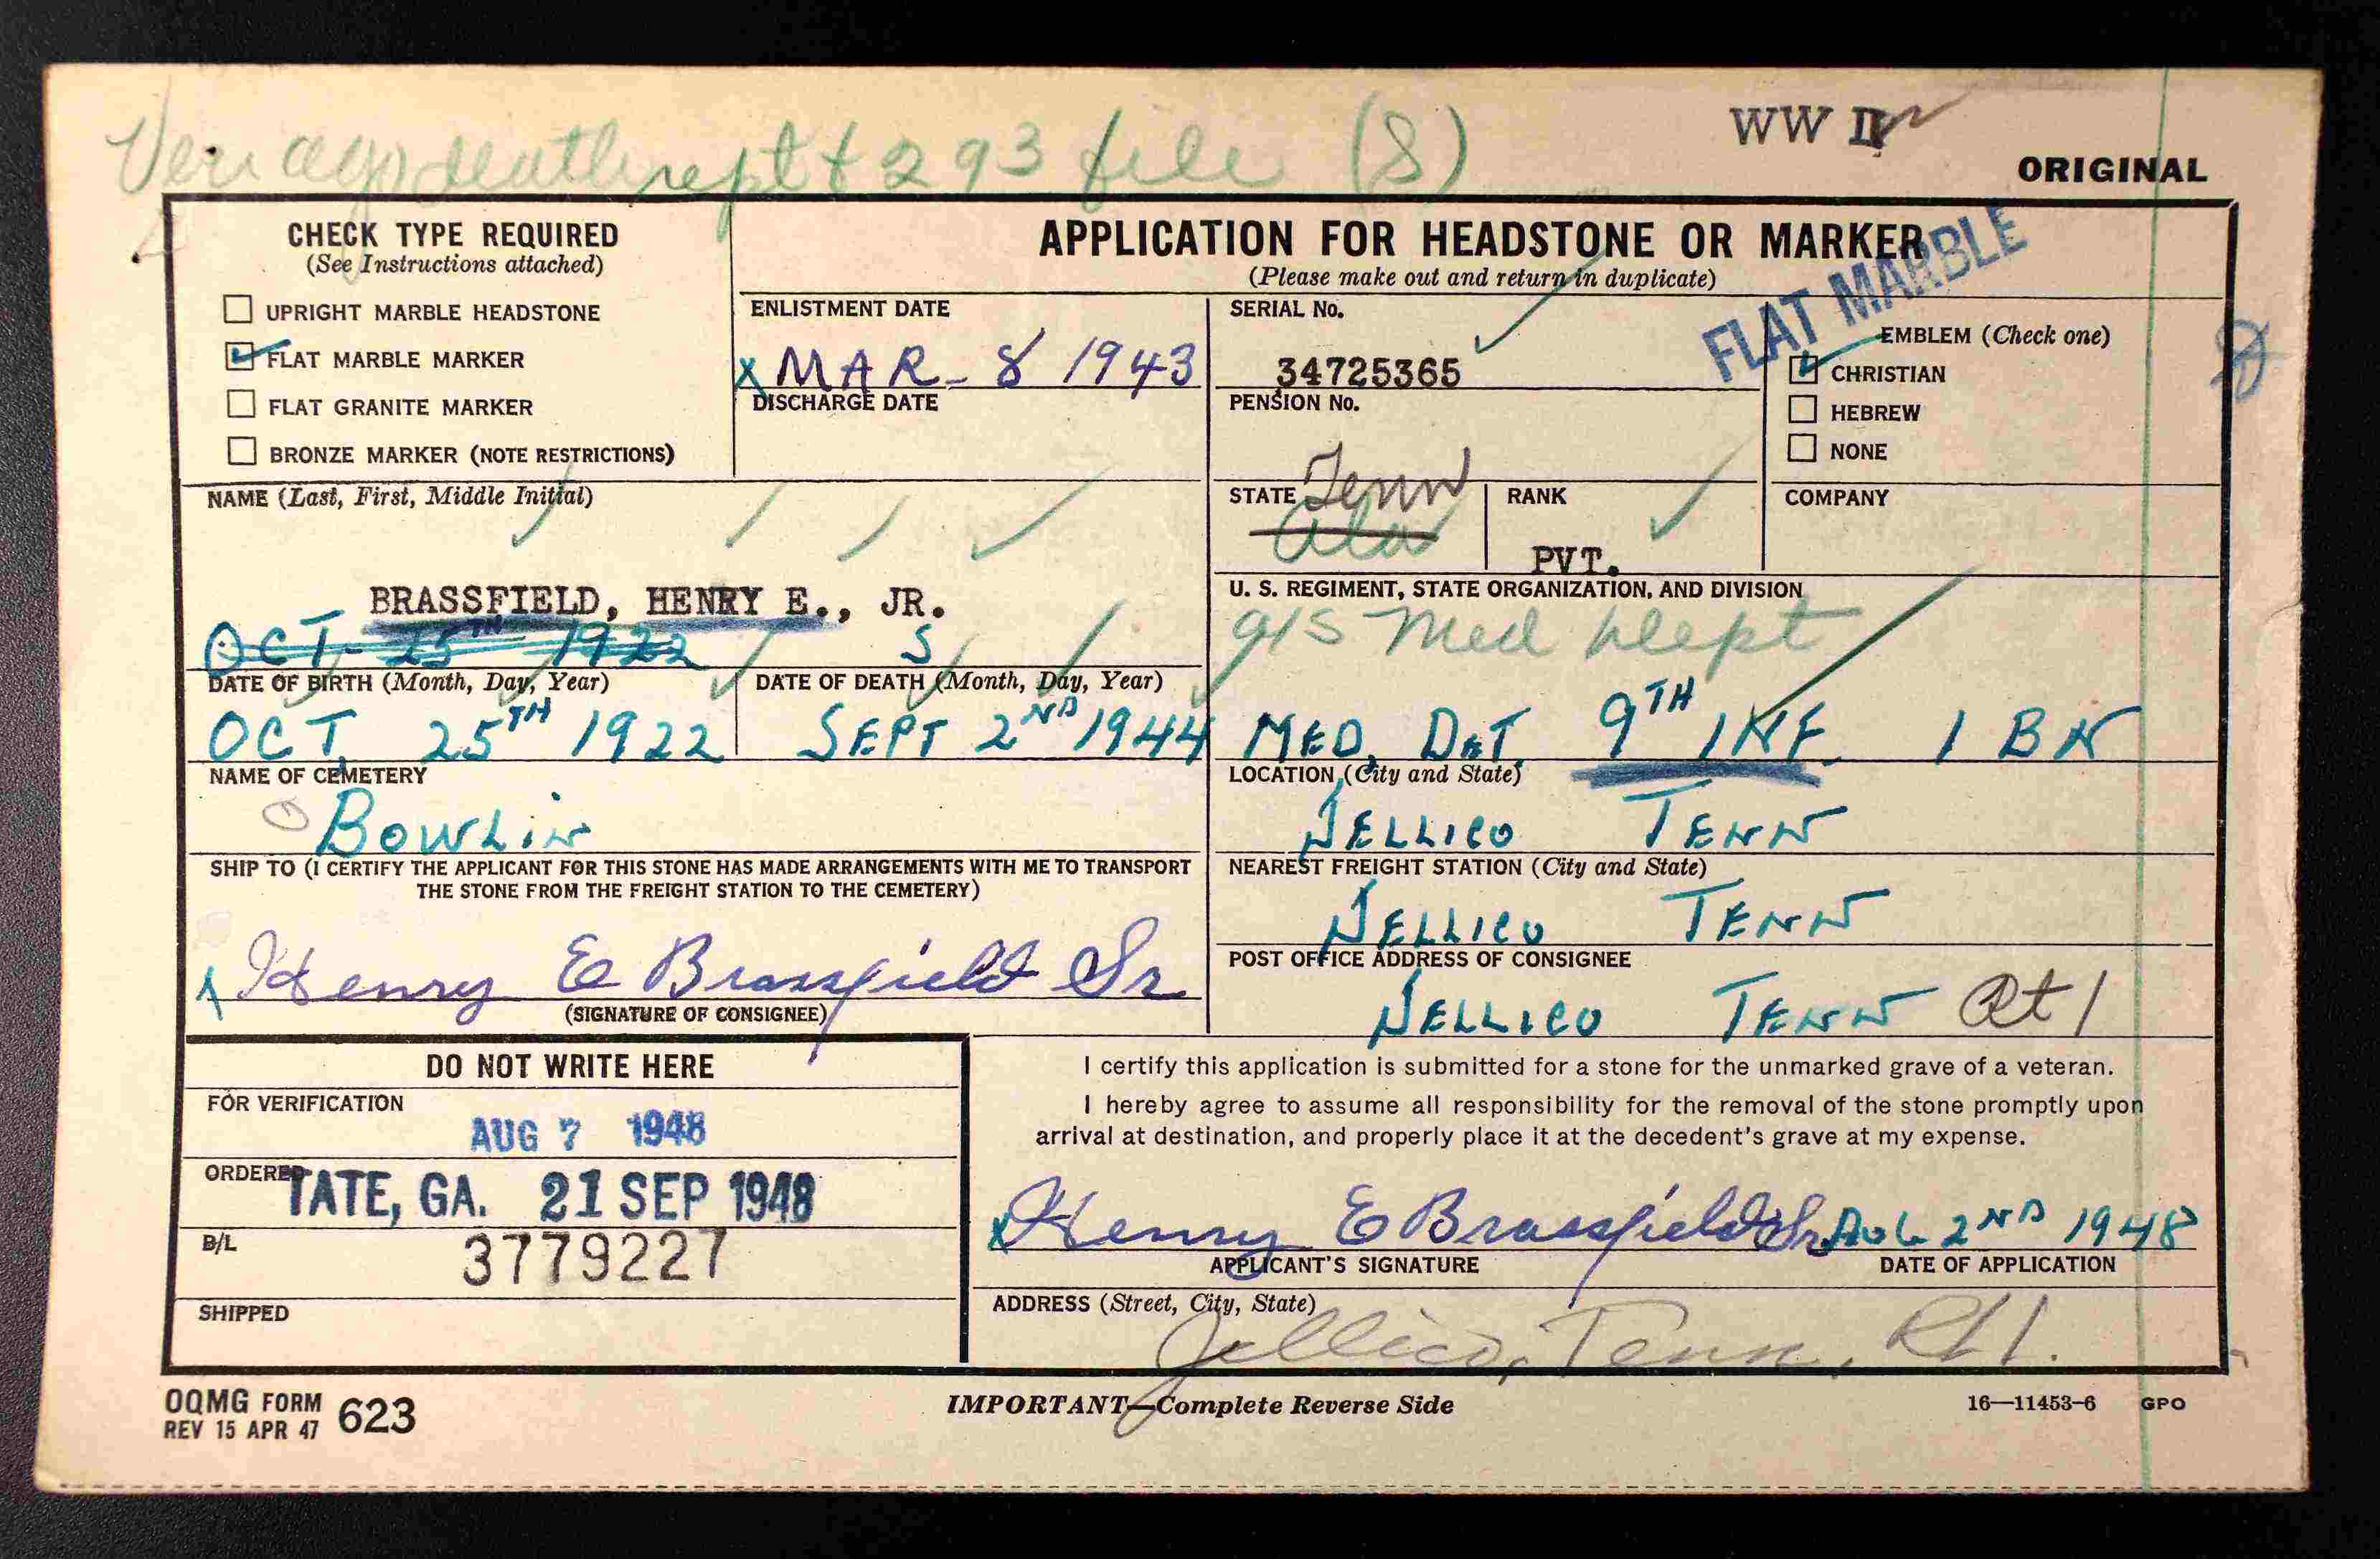 Veri ago death rept + 293 file (S)
WW II
ORIGINAL
CHECK TYPE REQUIRED
(See Instructions attached)
UPRIGHT MARBLE HEADSTONE
FLAT MARBLE MARKER
FLAT GRANITE MARKER
BRONZE MARKER (NOTE RESTRICTIONS)
APPLICATION FOR HEADSTONE OR MARKER
(Please make out and return in duplicate)
FLAT MARBLE
ENLISTMENT DATE
X MAR - 8 1943
DISCHARGE DATE
SERIAL No.
34725365
PENSION No.
EMBLEM (Check one)
CHRISTIAN
HEBREW
NONE
NAME (Last, First, Middle Initial)
BRASSFIELD, HENRY E., JR.
OCT - 25TH 1922 S
STATE Tenn
Ala
RANK
PVT.
COMPANY
U. S. REGIMENT, STATE ORGANIZATION, AND DIVISION
9/S Med Dept
MED. DET. 9TH INF. 1 BN
DATE OF BIRTH (Month, Day, Year)
OCT. 25TH 1922
DATE OF DEATH (Month, Day, Year)
SEPT 2ND 1944
NAME OF CEMETERY
BOWLIN
LOCATION (City and State)
JELLICO TENN
SHIP TO (I CERTIFY THE APPLICANT FOR THIS STONE HAS MADE ARRANGEMENTS WITH ME TO TRANSPORT
THE STONE FROM THE FREIGHT STATION TO THE CEMETERY)
X Henry E Brassfield Sr
(SIGNATURE OF CONSIGNEE)
NEAREST FREIGHT STATION (City and State)
JELLICO TENN
POST OFFICE ADDRESS OF CONSIGNEE
JELLICO TENN Rt 1
DO NOT WRITE HERE
FOR VERIFICATION
AUG 7 1948
ORDERED
TATE, GA. 21 SEP 1948
B/L
3779227
SHIPPED
I certify this application is submitted for a stone for the unmarked grave of a veteran.
I hereby agree to assume all responsibility for the removal of the stone promptly upon
arrival at destination, and properly place it at the decedent's grave at my expense.
X Henry E Brassfield Sr AUG 2ND 1948
APPLICANT'S SIGNATURE
DATE OF APPLICATION
ADDRESS (Street, City, State)
Jellico, Tenn. Rt 1.
OQMG FORM 623
REV 15 APR 47
IMPORTANT—Complete Reverse Side
16—11453-6 GPO